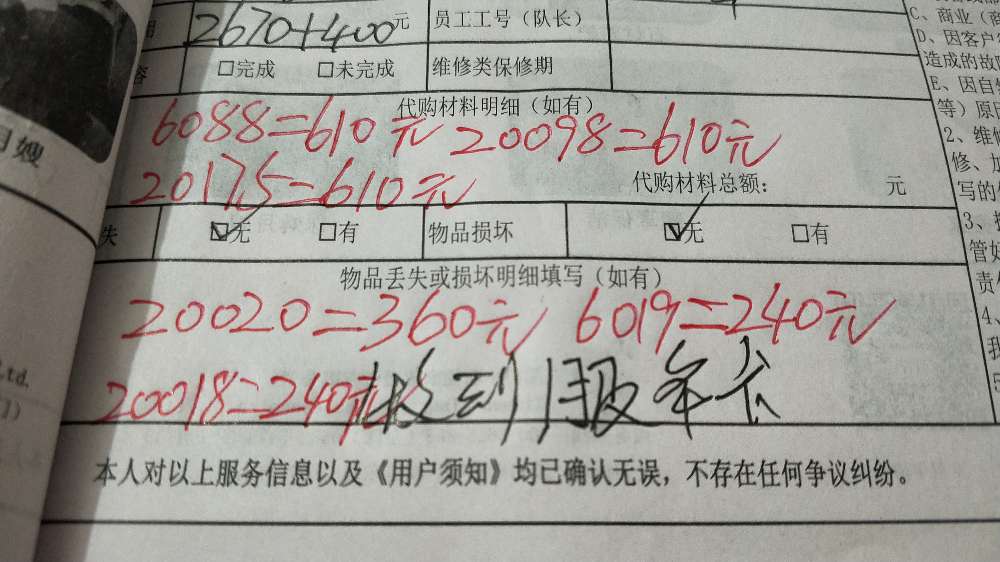 用 2670+400 元 员工工号(队长)
容 □完成 □未完成 维修类保修期
代购材料明细(如有)
6088=610元 20098=610元
20175=610元 代购材料总额: 元
失 ☑无 □有 物品损坏 ☑无 □有
物品丢失或损坏明细填写(如有)
20020=360元 6019=240元
20018=240元 收到 服 年卡
本人对以上服务信息以及《用户须知》均已确认无误,不存在任何争议纠纷。
月嫂
Ltd.
C、商业(商
D、因客户
造成的故
E、因自
等)原
2、维
修、加
写的
3、
管好
责
4、
我